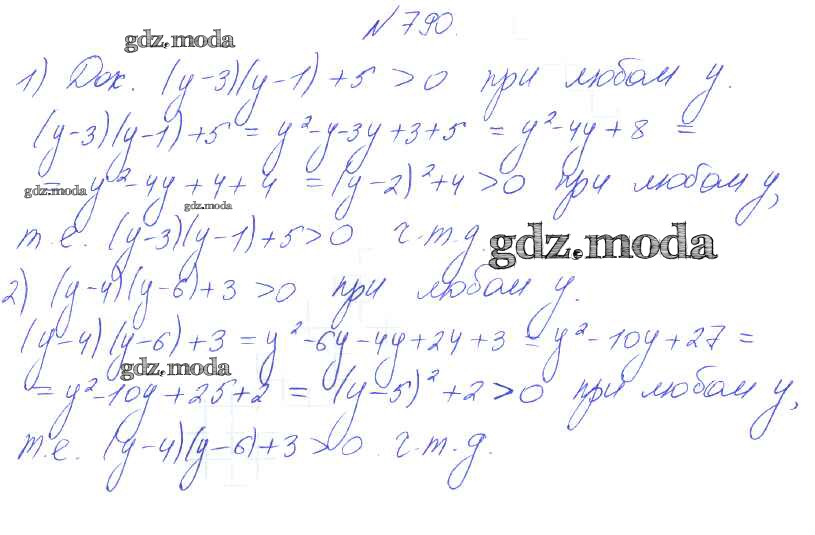 № 790.
gdz.moda
1) Док. (y-3)(y-1)+5 >0 при любом y.
(y-3)(y-1)+5 = y²-y-3y+3+5 = y²-4y+8 =
= y²-4y+4+4 = (y-2)²+4 >0 при любом y,
gdz.moda
gdz.moda
т.е. (y-3)(y-1)+5>0 ч.т.д.
gdz.moda
2) (y-4)(y-6)+3 >0 при любом y.
(y-4)(y-6)+3 = y²-6y-4y+24+3 = y²-10y+27 =
gdz.moda
= y²-10y+25+2 = (y-5)²+2>0 при любом y,
т.е. (y-4)(y-6)+3>0 ч.т.д.